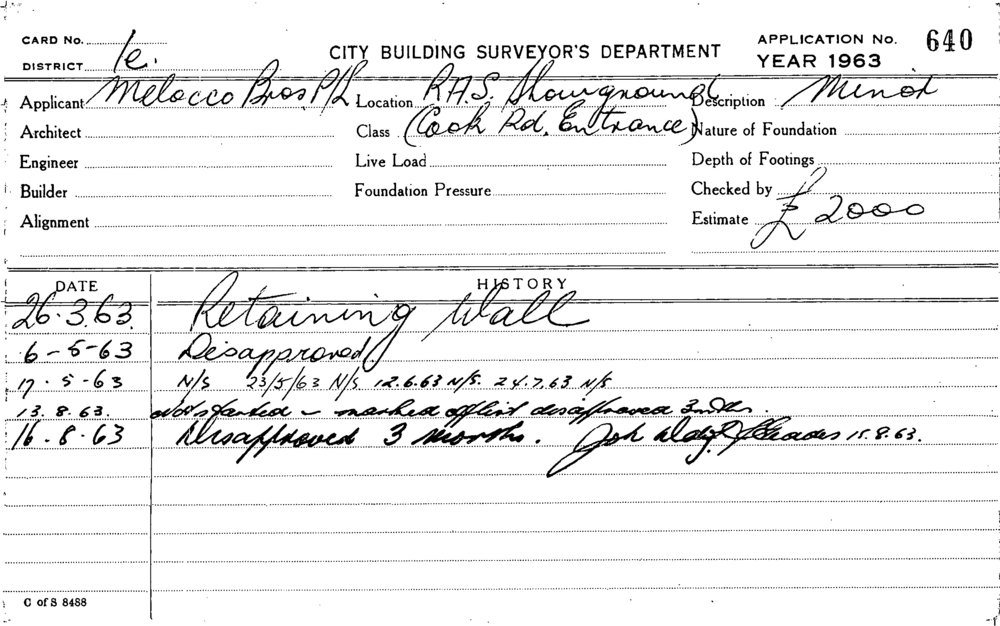 CARD No. CITY BUILDING SURVEYOR'S DEPARTMENT APPLICATION No. 640
DISTRICT 1e. YEAR 1963
Applicant Melocco Bros P/L Location R.A.S. Showground Description Minor
Architect Class (Cook Rd. Entrance) Nature of Foundation
Engineer Live Load Depth of Footings
Builder Foundation Pressure Checked by
Alignment Estimate £ 2000
DATE HISTORY
26.3.63. Retaining Wall
6-5-63 Disapproved
17.5-63 N/S 23/5/63 N/S 12.6.63 N/S. 24.7.63 N/S
13.8.63. Not started - marked off list disapproved 3 mths.
16.8.63 Disapproved 3 months. 15.8.63.
C of S 8488